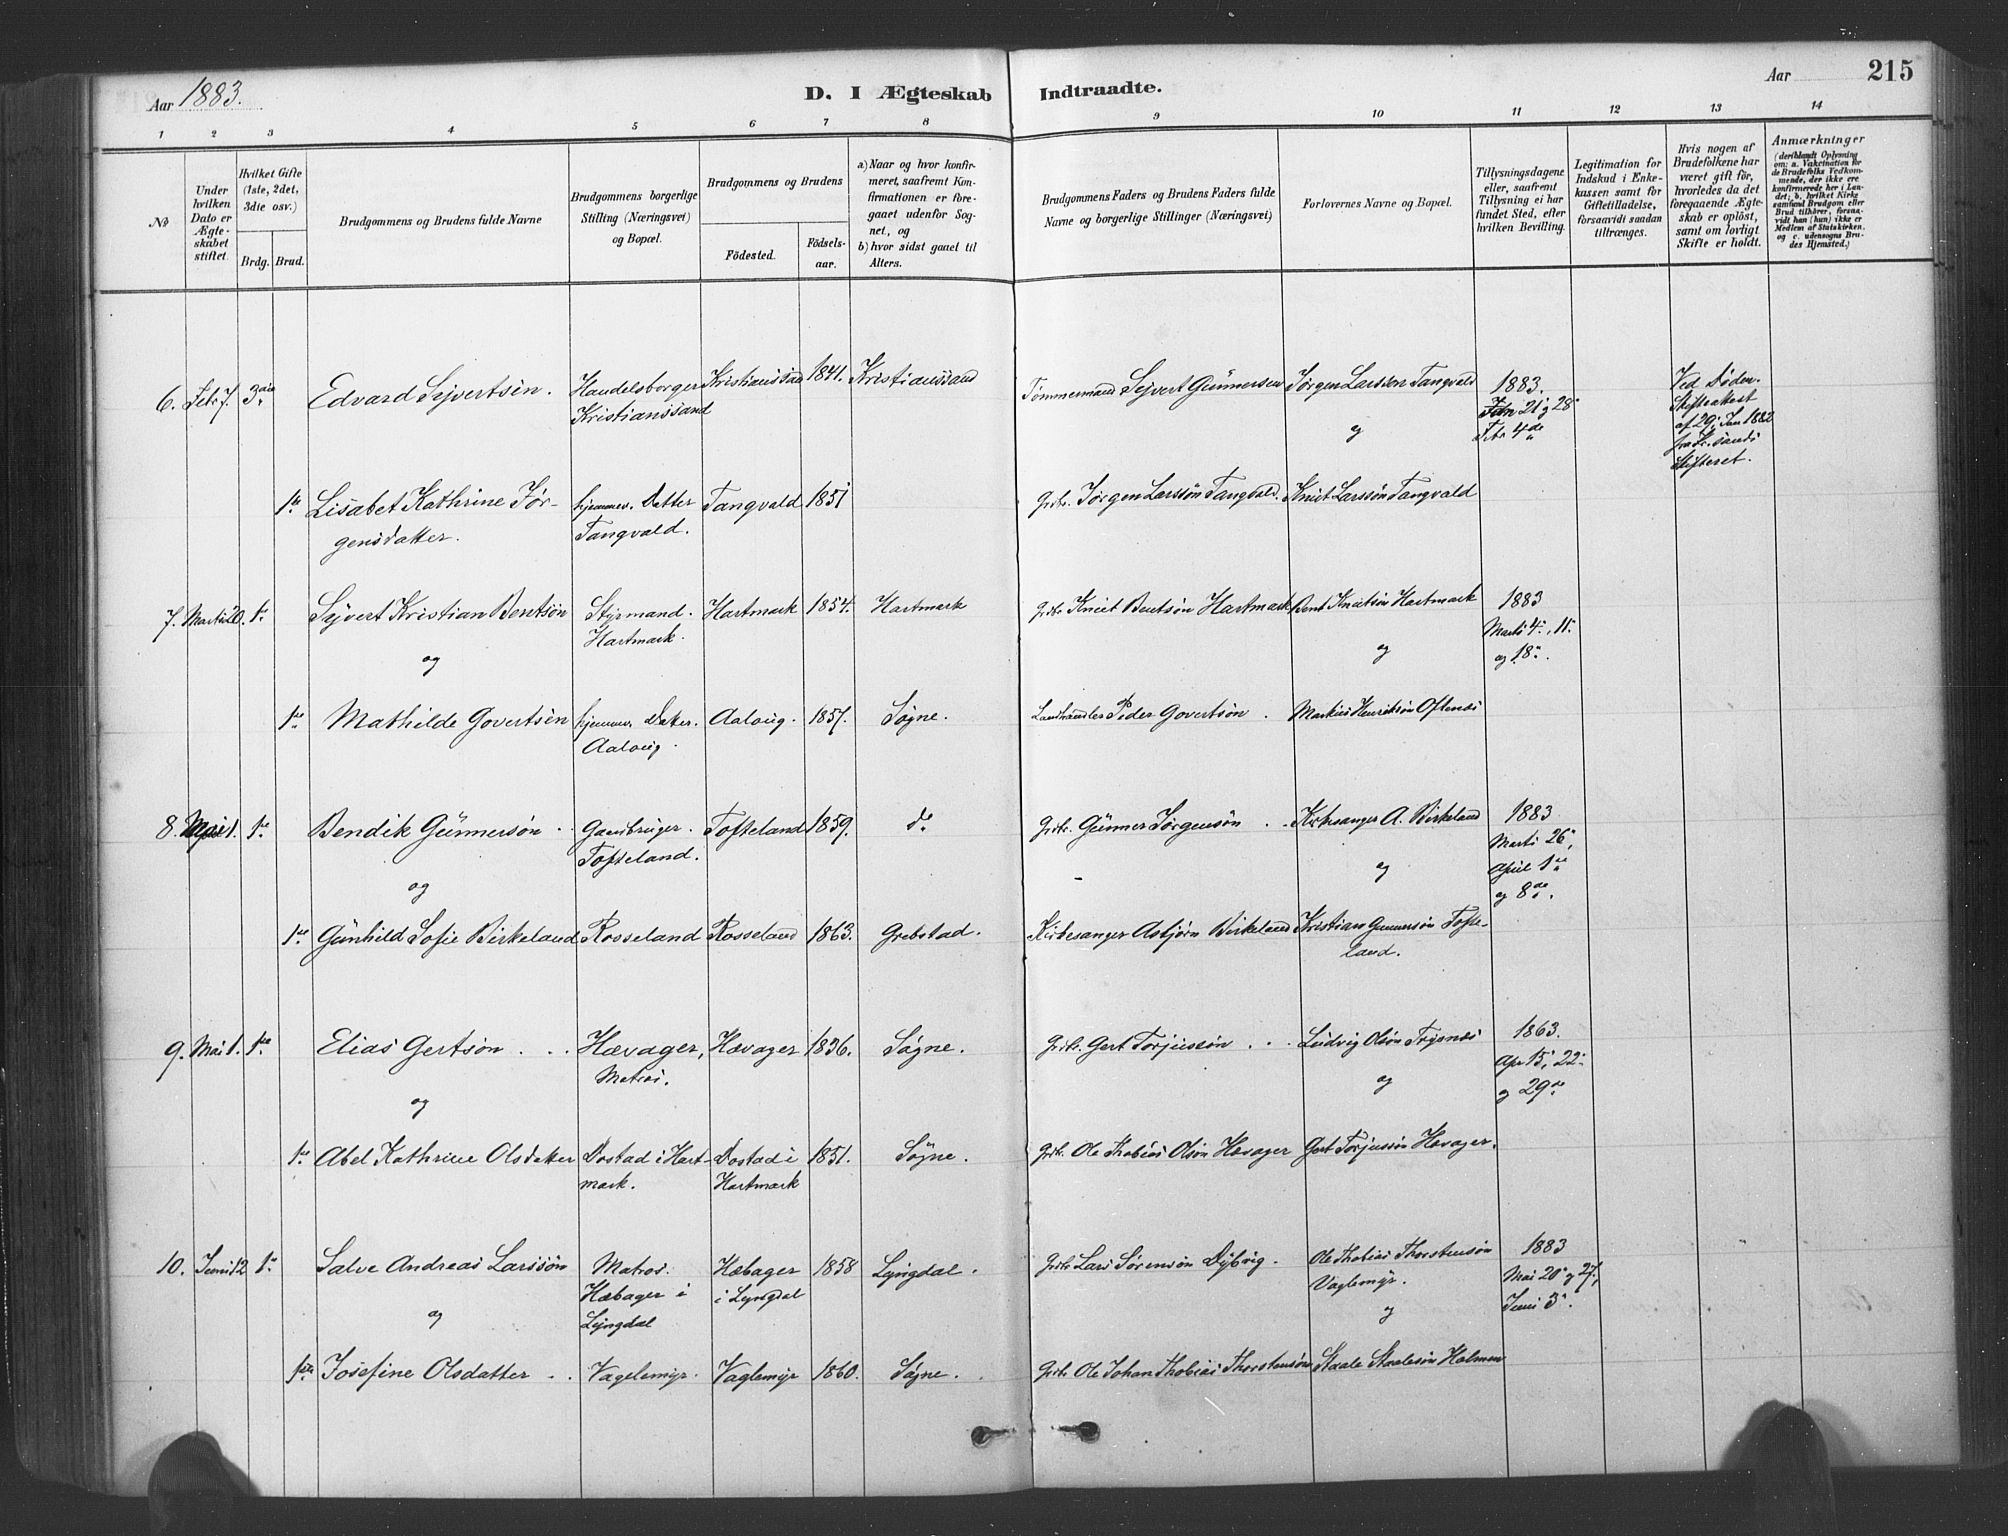 Aar 1883.
D. I Ægteskab Indtraadte.
Aar
215
1 2 3 4 5 6 7 8 9 10 11 12 13 14
No
Under hvilken Dato er Ægteskabet stiftet.
Hvilket Gifte (1ste, 2det, 3die osv.)
Brdg. Brud.
Brudgommens og Brudens fulde Navne
Brudgommens borgerlige Stilling (Næringsvei) og Bopæl.
Brudgommens og Brudens
Födested.
Födselsaar.
a) Naar og hvor konfirmeret, saafremt Konfirmationen er foregaaet udenfor Sognet, og
b) hvor sidst gaaet til Alters.
Brudgommens Faders og Brudens Faders fulde Navne og borgerlige Stillinger (Næringsvei)
Forlovernes Navne og Bopæl.
Tillysningsdagene eller, saafremt Tillysning ei har fundet Sted, efter hvilken Bevilling.
Legitimation for Indskud i Enkekassen samt for Giftetilladelse, forsaavidt saadan tiltrænges.
Hvis nogen af Brudefolkene har været gift för, hvorledes da det foregaaende Ægteskab er oplöst, samt om lovligt Skifte er holdt.
Anmærkninger
(deriblandt Oplysning om: a. Vakcination for de Brudefolks Vedkommende, der ikke ere konfirmerede her i Landet; b. hvilket Kirkesamfund Brudgom eller Brud tilhörer, forsaavidt han (hun) ikke er Medlem af Statskirken, og c. udensogns Brudes Hjemsted.)
6. Febr 7. 3die Edvard Sejvertsen. Handelsborger Kristianssand Kristianssand 1841. Kristianssand Tømmermand Sejvert Gunnersen Jørgen Larssøn Tangvald og 1883. Jan 21 og 28 Febr 4de Ved Døden. Skifteattest af 29 Jan 1883 fra Kr.sands Skifteret.
1ste Lisabet Kathrine Jørgensdatter. hjemmev. Datter Tangvald. Tangvald 1851 Grdbr. Jørgen Larssøn Tangvald. Knut Larssøn Tangvald
7. Marts 20. 1ste Sejvert Kristian Bentsøn og Styrmand. Hartmark. Hartmark 1854. Hartmark Grdbr. Knut Bentsøn Hartmark Bent Knutsøn Hartmark og 1883 Marts 4., 11. og 18.
1ste Mathilde Govertsen hjemmev. Datter. Aaloug. Aaloug. 1857. Søgne. Landhandler Peder Govertsøn. Markus Henriksøn Oftenes
8. Mai 1. 1ste Bendik Gunnersøn og Gaardbruger. Tofteland. Tofteland 1859. do Grdbr. Gunner Jørgensøn Kirkesanger A. Birkeland og 1883 Marts 26, April 1ste og 8de.
1ste Gunhild Sofie Birkeland Rosseland Rosseland 1863. Grebstad. Kirkesanger Asbjørn Birkeland Kristian Gunnersøn Tofteland.
9. Mai 1. 1ste Elias Gertsøn og Hævager, Matros. Hævager 1836. Søgne. Grdbr. Gert Torjussøn Ludvig Olsøn Trysnes og 1863. Apr 15, 22 og 29de
1ste Abel Kathrine Olsdatter Dostad i Hartmark. Dostad i Hartmark 1851. Søgne. Grdbr. Ole Thobias Olsøn Hævager Gert Torjussøn Hævager.
10. Juni 12 1ste Salve Andreas Larssøn og Matros. Hæbager i Lyngdal Hæbager i Lyngdal 1858 Lyngdal. Grdbr Lars Sørensøn Dybvig. Ole Thobias Thorstensøn Vaglemyr. og 1883 Mai 20 og 27, Juni 3.
1ste Josefine Olsdatter Vagelemyr. Vaglemyr 1860. Søgne. Grdbr Ole Johan Thobias Thorstensøn Staale Staalesøn Holmen